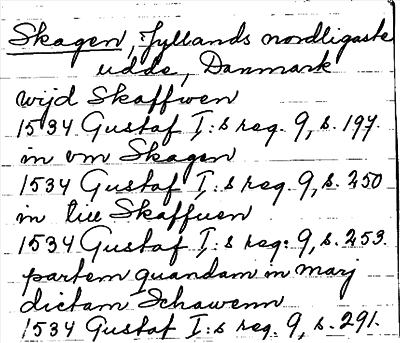 Skagen, Jyllands nordligaste
udde, Danmark
wijd Skaffwen
1534 Gustaf I:s reg. 9, s. 197.
in om Skagen
1534 Gustaf I:s reg. 9, s. 250
in till Skaffuen
1534 Gustaf I:s reg: 9, s. 253.
partem quandam in marj
dictam Schawenn
1534 Gustaf I:s reg. 9, s. 291.